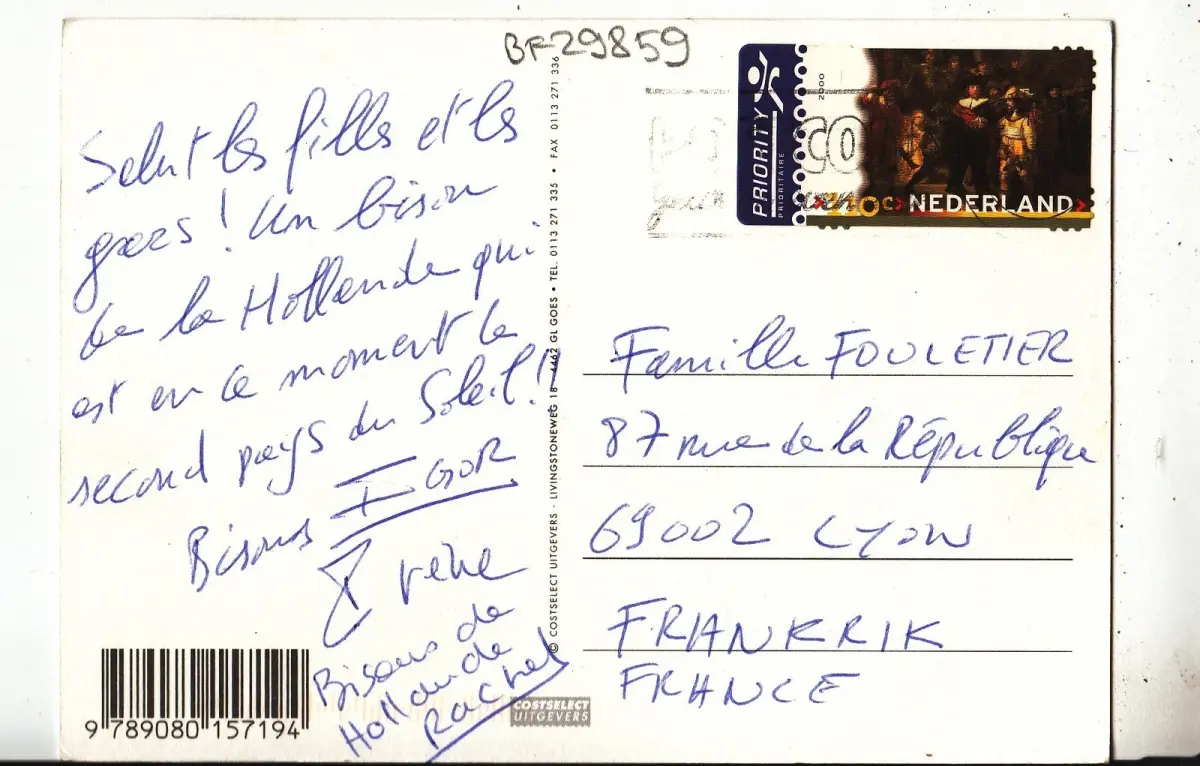 BF-29859
Salut les filles et les
gaars! Un bison
de la Hollande qui
est en ce moment le
second pays du Soleil!!
Bisous IGOR
Bisous de
Hollande
Rachel
9 789080 157194
© COSTSELECT UITGEVERS · LIVINGSTONEWEG 18 · 4462 GL GOES • TEL. 0113 271 335 • FAX 0113 271 336
COSTSELECT
UITGEVERS
PRIORITY
PRIORITAIRE
2000
110c NEDERLAND
Famille FOULETIER
87 rue de la République
69002 LYON
FRANKRIK
FRANCE